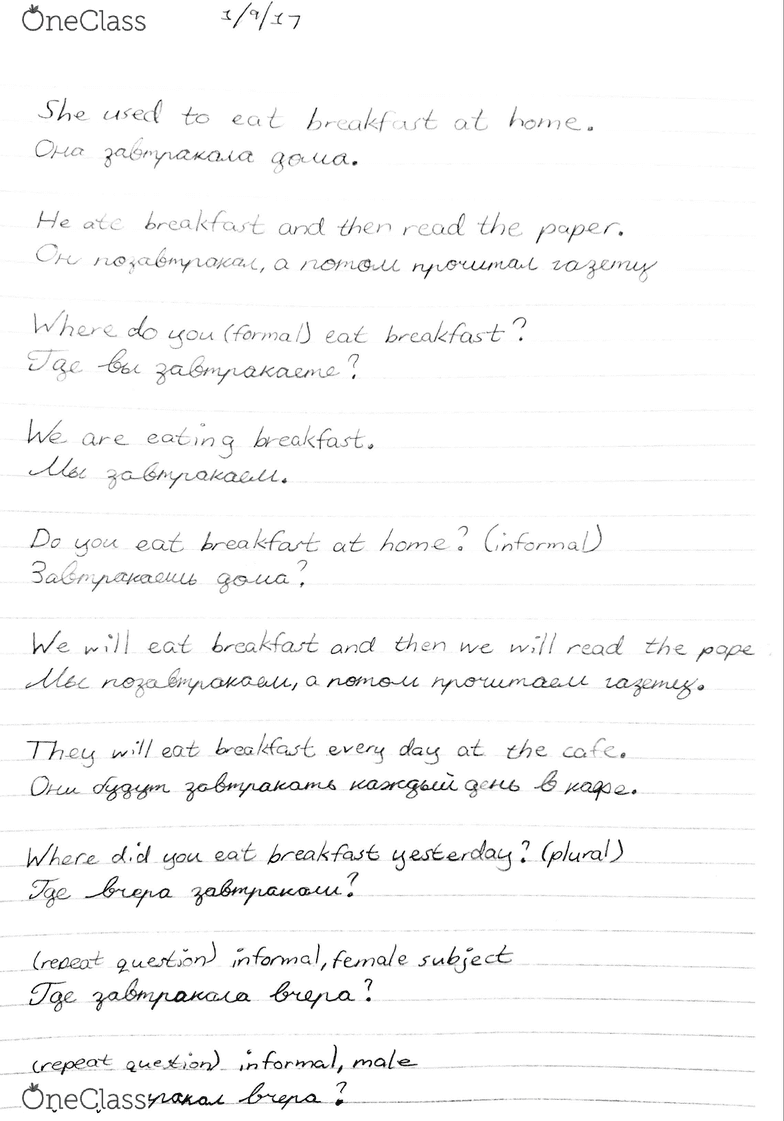 OneClass 1/9/17
She used to eat breakfast at home.
Она завтракала дома.
He ate breakfast and then read the paper.
Он позавтракал, а потом прочитал газету
Where do you (formal) eat breakfast?
Где вы завтракаете?
We are eating breakfast.
Мы завтракаем.
Do you eat breakfast at home? (informal)
Завтракаешь дома?
We will eat breakfast and then we will read the pape
Мы позавтракаем, а потом прочитаем газету.
They will eat breakfast every day at the cafe.
Они будут завтракать каждый день в кафе.
Where did you eat breakfast yesterday? (plural)
Где вчера завтракали?
(repeat question) informal, female subject
Где завтракала вчера?
(repeat question) informal, male
OneClass вчера?